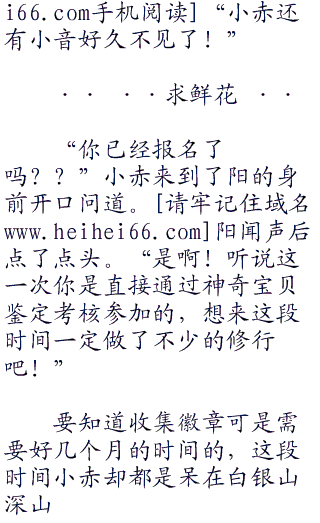 i66.com手机阅读]“小赤还
有小音好久不见了！”
·· ··求鲜花 ··
“你已经报名了
吗？？”小赤来到了阳的身
前开口问道。[请牢记住域名
www.heihei66.com]阳闻声后
点了点头。“是啊！听说这
一次你是直接通过神奇宝贝
鉴定考核参加的，想来这段
时间一定做了不少的修行
吧！”
要知道收集徽章可是需
要好几个月的时间的，这段
时间小赤却都是呆在白银山
深山